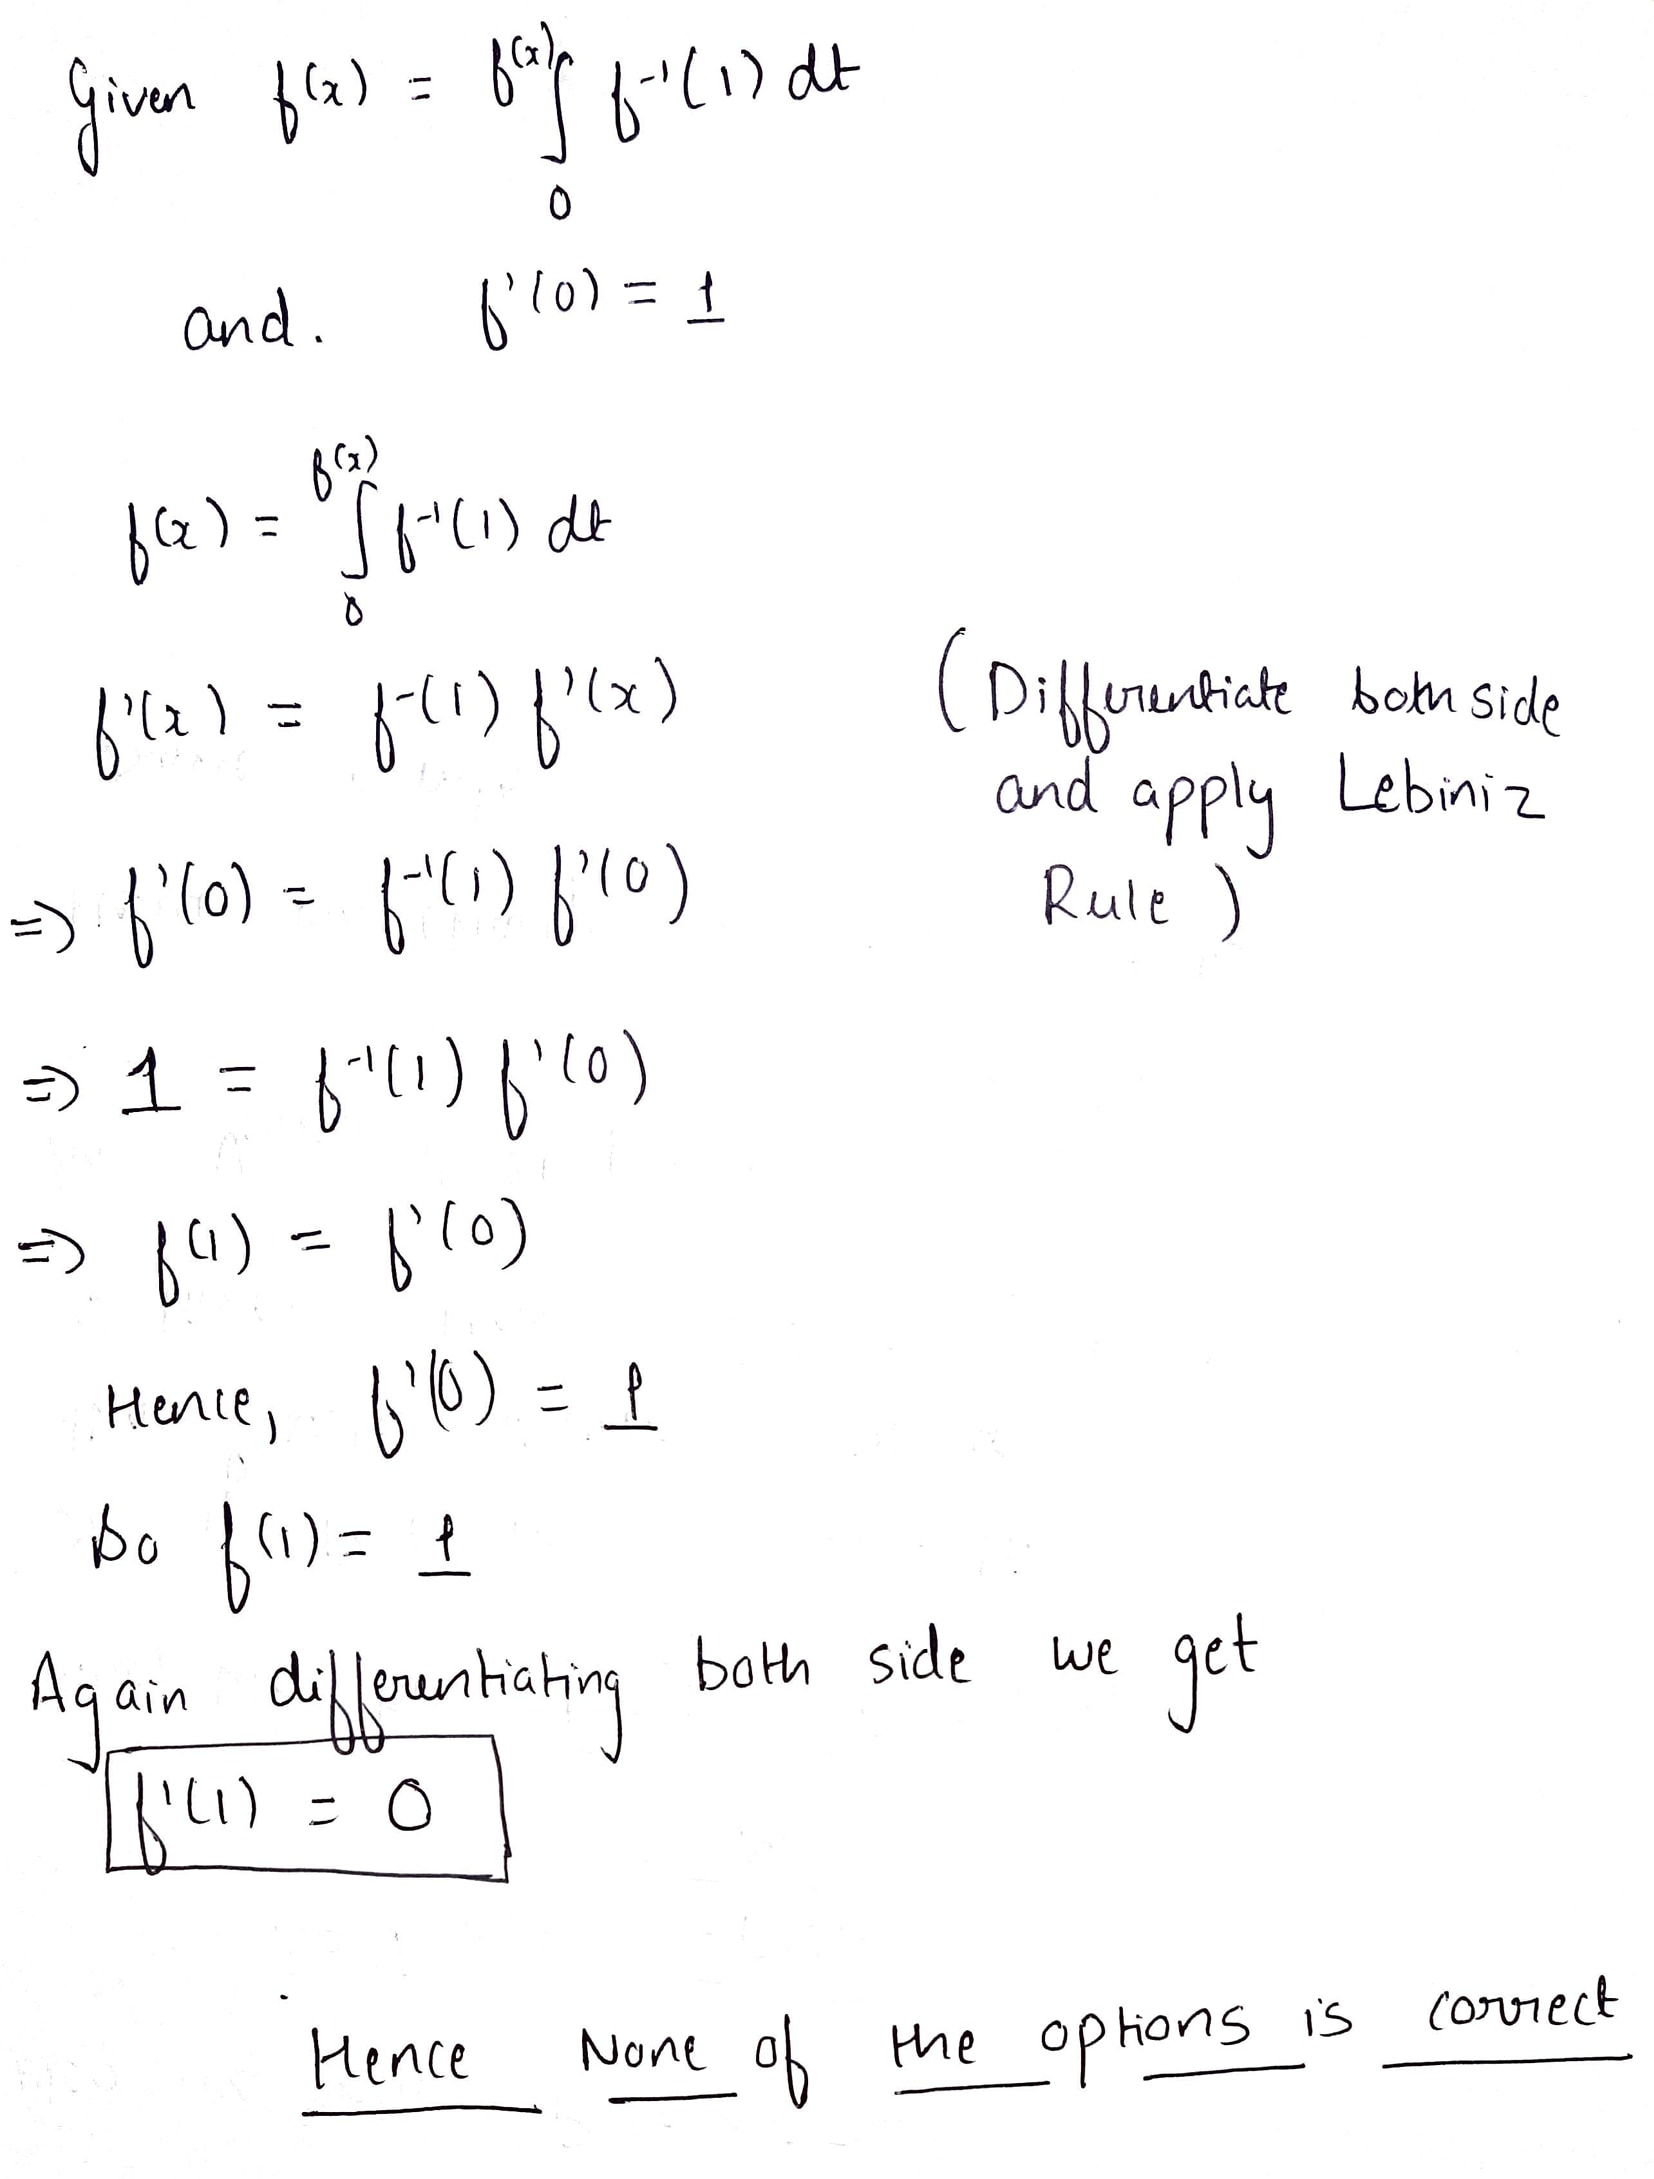 Given f(x) = ∫₀^f(x) f⁻¹(1) dt
and. f'(0) = 1
f(x) = ∫₀^f(x) f⁻¹(1) dt
f'(x) = f⁻(1) f'(x) (Differentiate both side
and apply Lebiniz
⇒ f'(0) = f⁻¹(1) f'(0) Rule)
⇒ 1 = f⁻¹(1) f'(0)
⇒ f(1) = f'(0)
Hence, f'(0) = 1
So f(1) = 1
Again differentiating both side we get
f'(1) = 0
Hence None of the options is correct